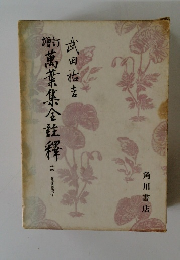 増訂 萬葉集全註釋
武田祐吉
角川書店